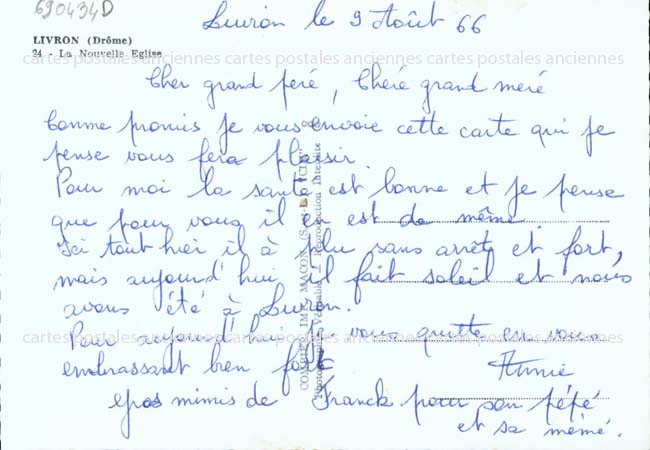 690434D
Livron le 9 Août 66
LIVRON (Drôme)
24 - La Nouvelle Eglise
cartes postales anciennes cartes postales anciennes cartes postales anciennes
Cher grand peré, Cheré grand meré
Comme promis je vous envoie cette carte qui je
pense vous fera plaisir.
Pour moi la santé est bonne et je pense
que pour vous il en est de même.
Ici tout hier il à plu sans arrêts et fort,
mais aujourd'hui il fait soleil et nous
avons été à Livron.
cartes postales anciennes cartes postales anciennes cartes postales anciennes
Pour aujourd'hui je vous quitte en vous
embrassant bien fort
Annie
gros mimis de Franck pour son pépé
et sa mémé.
COMBIER IMP. MACON
Photographie Véritable - Reproduction Interdite